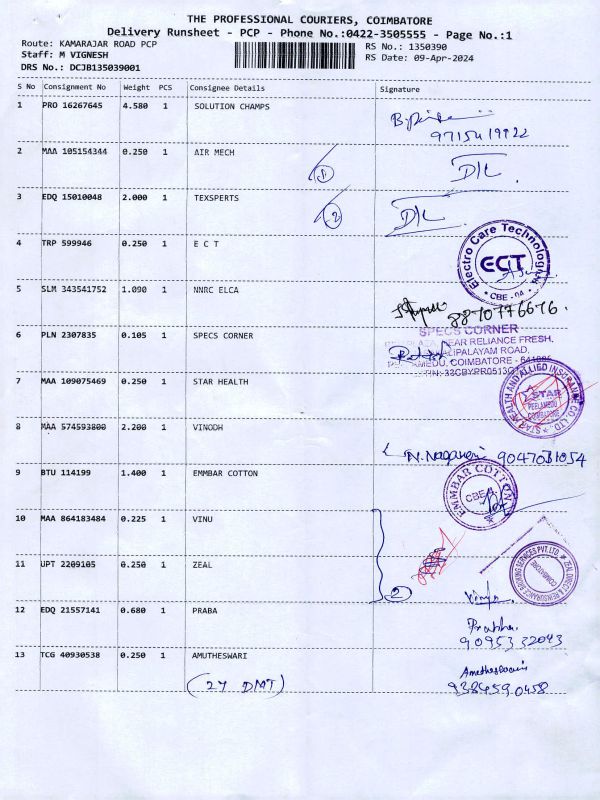 THE PROFESSIONAL COURIERS, COIMBATORE
Delivery Runsheet - PCP - Phone No.:0422-3505555 - Page No.:1
Route: KAMARAJAR ROAD PCP
Staff: M VIGNESH
DRS No.: DCJB135039001
RS No.: 1350390
RS Date: 09-Apr-2024
S No Consignment No Weight PCS Consignee Details Signature
1 PRO 16267645 4.580 1 SOLUTION CHAMPS
2 MAA 105154344 0.250 1 AIR MECH 1 D/L
3 EDQ 15010048 2.000 1 TEXSPERTS 2 D/L
4 TRP 599946 0.250 1 E C T
Electro Care Technology
ECT
CBE - 04
5 SLM 343541752 1.090 1 NNRC ELCA
8870776676.
6 PLN 2307835 0.105 1 SPECS CORNER
SPECS CORNER
NEAR RELIANCE FRESH,
ROAD,
COIMBATORE -
7 MAA 109075469 0.250 1 STAR HEALTH
STAR HEALTH AND ALLIED INSURANCE CO. LTD.
STAR
PEELAMEDU
COIMBATORE
8 MAA 574593800 2.200 1 VINODH
9 BTU 114199 1.400 1 EMMBAR COTTON
EMMBAR COTTON
CBE-4
10 MAA 864183484 0.225 1 VINU
11 UPT 2209105 0.250 1 ZEAL
2
COIMBATORE
12 EDQ 21557141 0.680 1 PRABA
Prabha
9095332043
13 TCG 40930538 0.250 1 AMUTHESWARI
9384590458
(27 DMT)